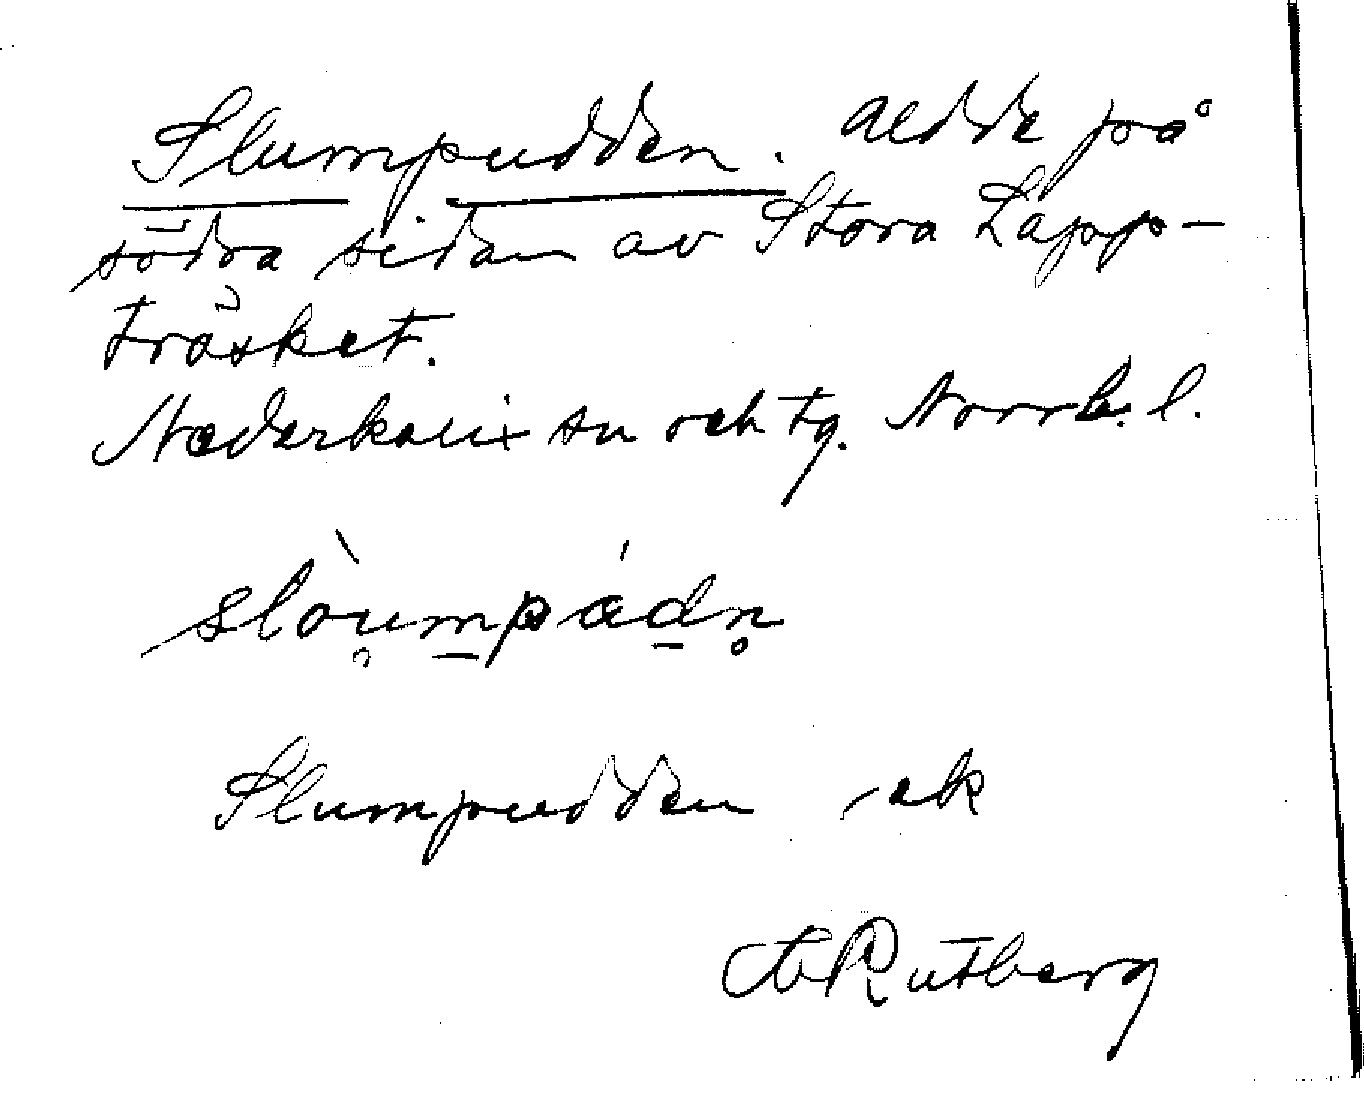 Slumpudden. Udde på
södra sidan av Stora Lapp-
träsket.
Nederkalix sn och tg. Norrb. l.
slòumpádn
Slumpudden -ak
Rutberg